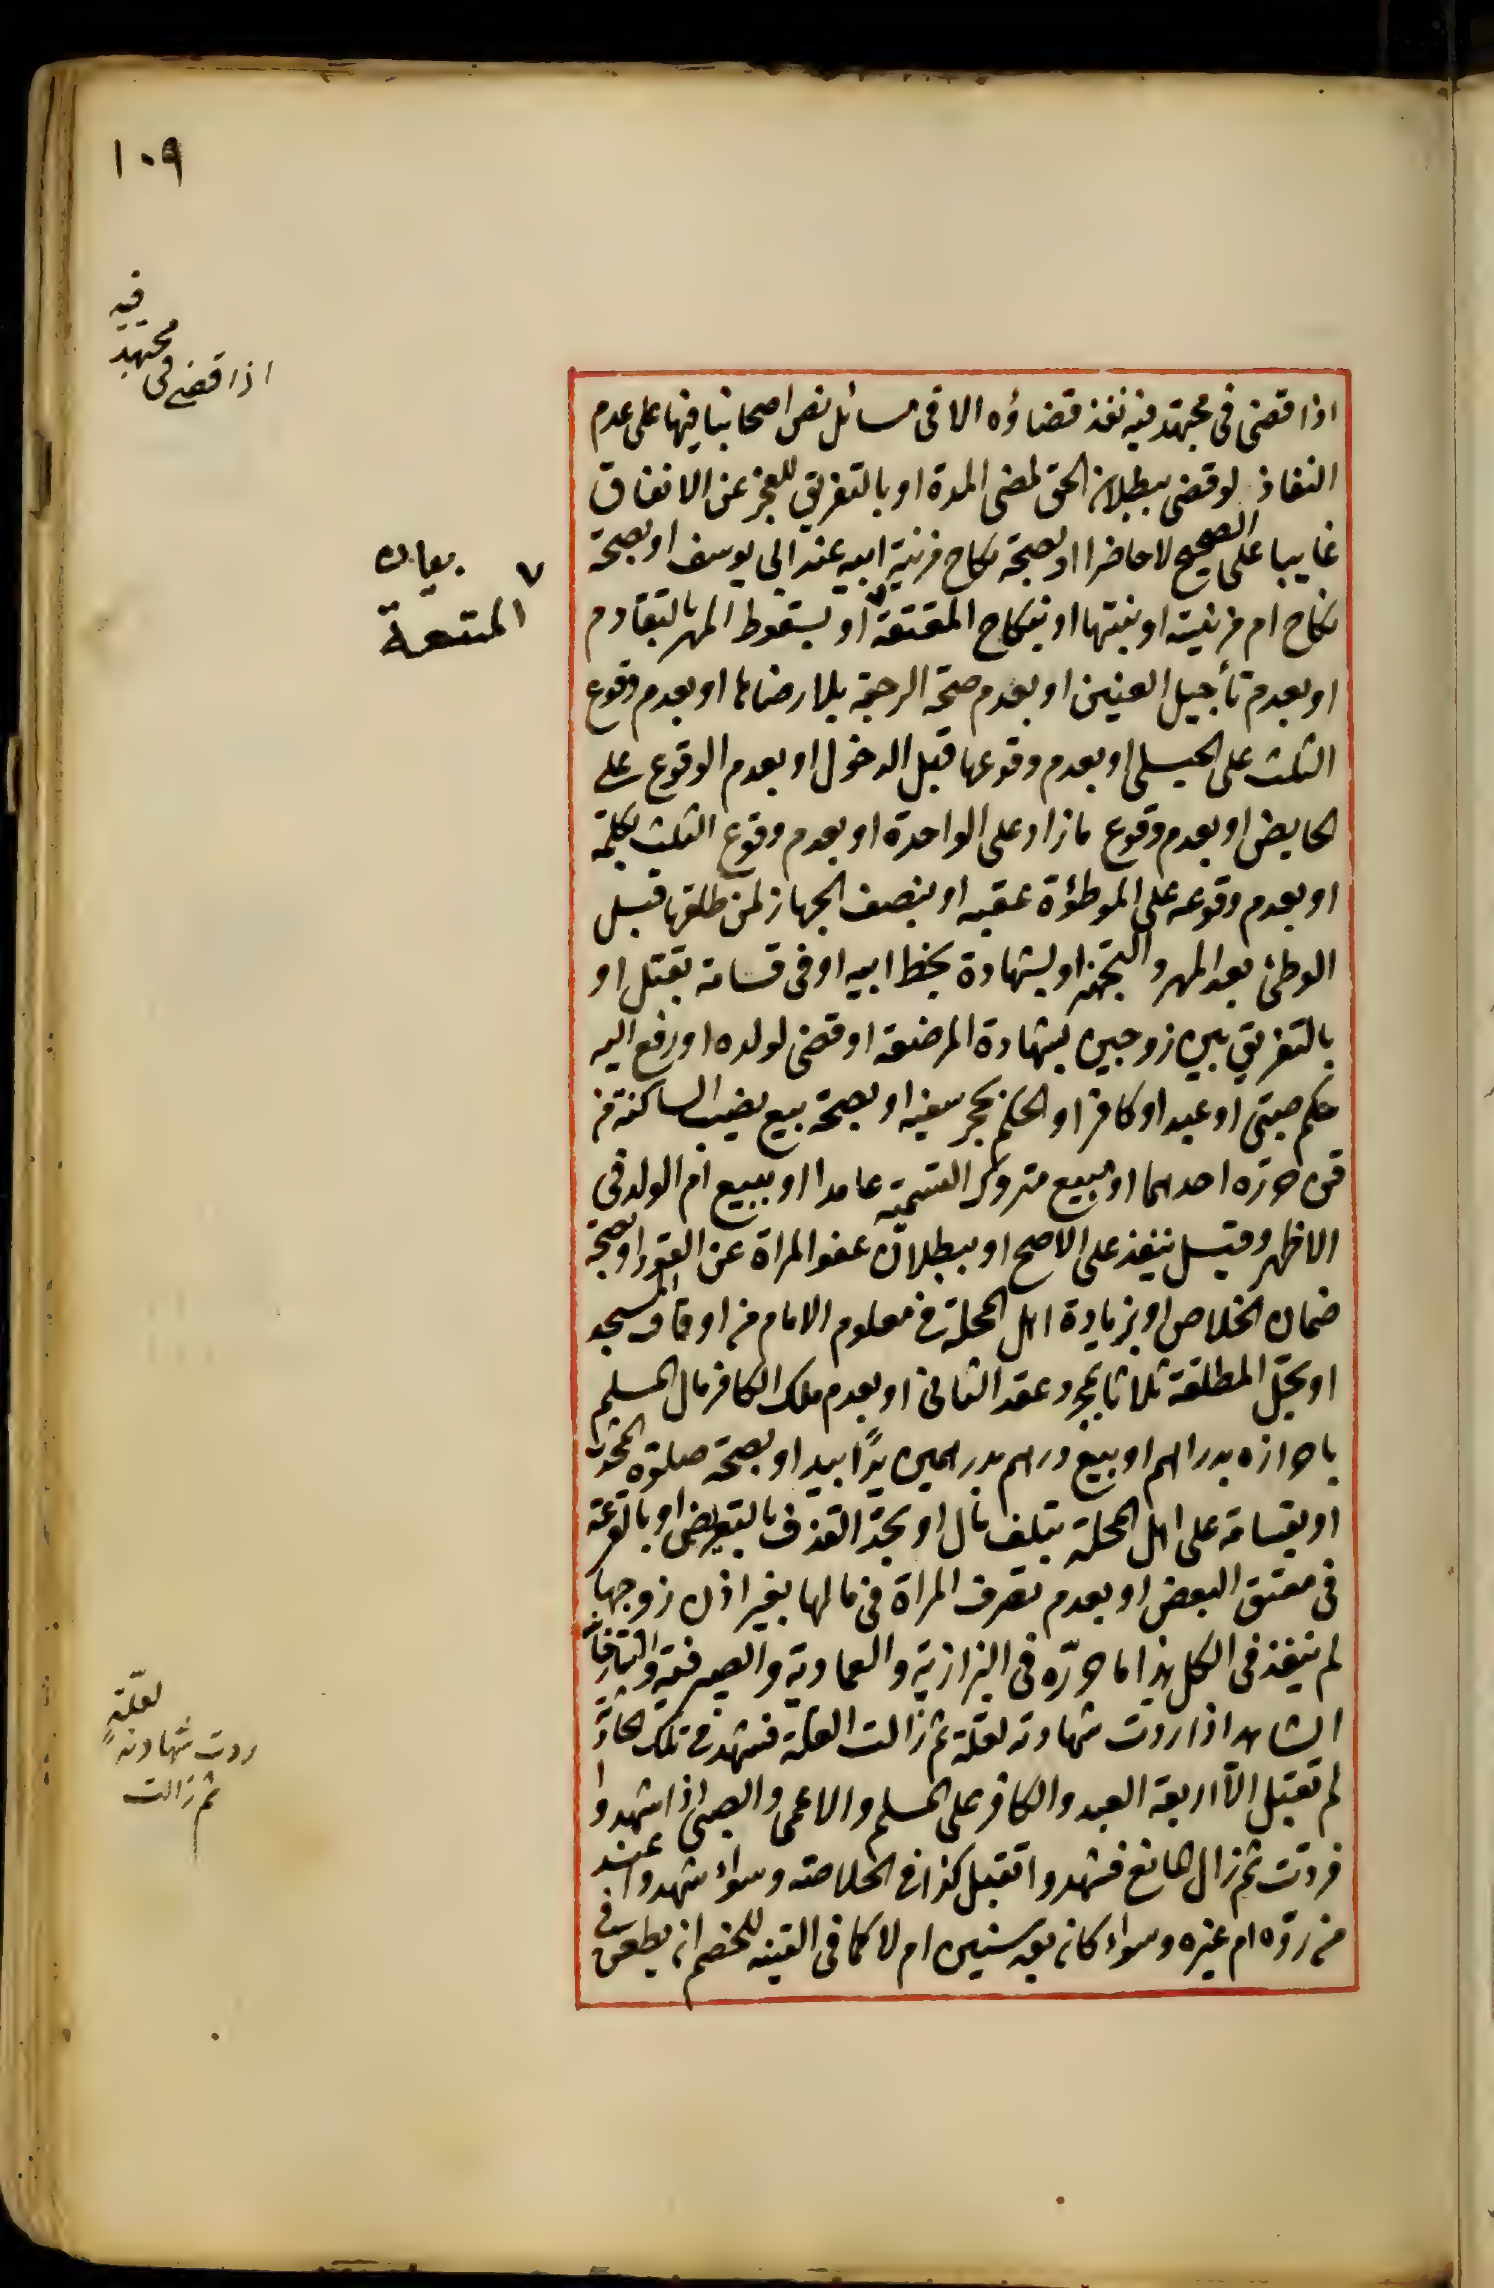 ١٠٩
اذا قضى فى مجتهد فيه
اذا قضى فى مجتهد فيه نفذ قضاؤه الا فى مسائل نص اصحابنا فيها على عدم
النفاذ لو قضى ببطلان الحق لمضى المدة او بالتفريق للعجز عن الانفاق
غايبا على الصحيح لا حاضرا او بصحة نكاح مزنية ابيه عند ابى يوسف او بصحة
نكاح ام مزنيته او بنتها او بنكاح المتعة او بسقوط المهر بالتقادم
بيان المتعة
او بعدم تأجيل العنين او بعدم صحة الرجعة بلا رضاها او بعدم وقوع
الثلث على الحبلى او بعدم وقوعها قبل الدخول او بعدم الوقوع على
الحايض او بعدم وقوع ما زاد على الواحدة او بعدم وقوع الثلث بكلمة
او بعدم وقوعه على الموطؤة عقبه او بنصف الجهاز لمن طلقها قبل
الوطئ بعد المهر والتجهيز او بشهادة بخط ابيه او فى قسامة بقتل او
بالتفريق بين زوجين بشهادة المرضعة او قضى لولده او رفع اليه
حكم صبى او عبد او كافر او الحكم بحجر سفيه او بصحة بيع نصيب الساكت من
قن حرره احدهما او ببيع متروك التسمية عامدا او ببيع ام الولد فى
الاظهر وقيل ينفذ على الاصح او ببطلان عفو المراة عن القود او بصحة
ضمان الخلاص او بزيادة اهل المحلة فى معلوم الامام من اوقاف المسجد
او بحل المطلقة ثلاثا بمجرد عقد الثانى او بعدم ملك الكافر مال المسلم
باحرازه بدراهم او ببيع درهم بدرهمين يدًا بيد او بصحة صلوة المحدث
او بقسامة على اهل المحلة بتلف مال او بحد القذف بالتعريض او بالقرعة
فى معتق البعض او بعدم تصرف المراة فى مالها بغير اذن زوجها
لم ينفذ فى الكل هذا ما حرره فى البزازية والعمادية والصيرفية والتتارخانية
الشاهد اذا ردت شهادته لعلة ثم زالت العلة فشهد فى تلك الحادثة
ردت شهادته لعلّةٍ ثم زالت
لم تقبل الّا اربعة العبد والكافر على المسلم والاعمى والصبى اذا شهدوا
فردّت ثم زال المانع فشهدوا تقبل كذا فى الخلاصة وسواء شهدوا عند
من ردّه ام غيره وسواء كان بعد سنين ام لا كما فى القنية للخصم ان يطعن فى